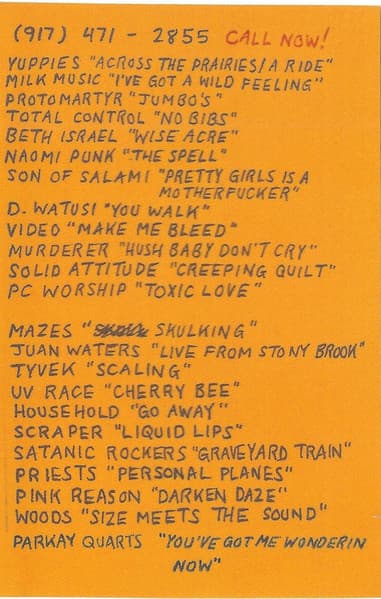 (917) 471 - 2855 CALL NOW!
YUPPIES "ACROSS THE PRAIRIES/A RIDE"
MILK MUSIC "I'VE GOT A WILD FEELING"
PROTOMARTYR "JUMBO'S"
TOTAL CONTROL "NO BIBS"
BETH ISRAEL "WISE ACRE"
NAOMI PUNK "THE SPELL"
SON OF SALAMI "PRETTY GIRLS IS A
MOTHERFUCKER"
D. WATUSI "YOU WALK"
VIDEO "MAKE ME BLEED"
MURDERER "HUSH BABY DON'T CRY"
SOLID ATTITUDE "CREEPING QUILT"
PC WORSHIP "TOXIC LOVE"
MAZES " SKULKING"
JUAN WATERS "LIVE FROM STONY BROOK"
TYVEK "SCALING"
UV RACE "CHERRY BEE"
HOUSEHOLD "GO AWAY"
SCRAPER "LIQUID LIPS"
SATANIC ROCKERS "GRAVEYARD TRAIN"
PRIESTS "PERSONAL PLANES"
PINK REASON "DARKEN DAZE"
WOODS "SIZE MEETS THE SOUND"
PARKAY QUARTS "YOU'VE GOT ME WONDERIN
NOW"